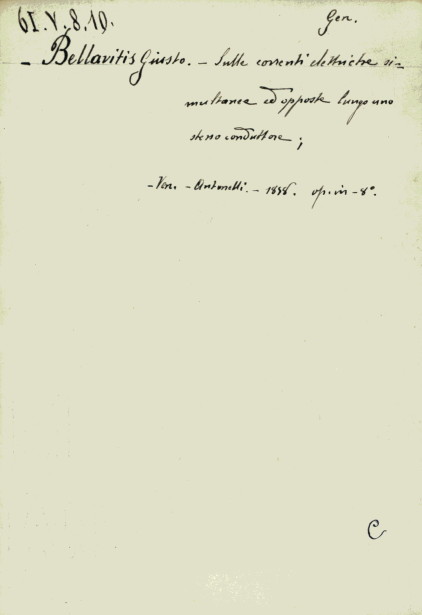 61.V.8.10.
Gen.
- Bellavitis Giusto. - Sulle correnti elettriche si-
multanee ed opposte lungo uno
stesso conduttore;
- Ven. - Antonelli. - 1858. op. in - 8°.
C